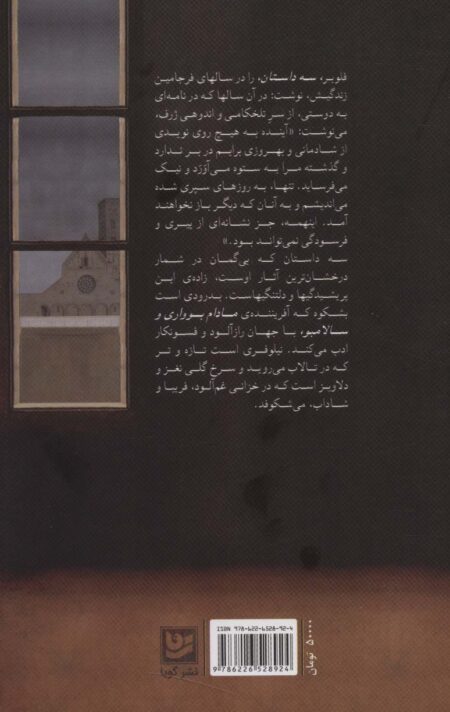 فلوبر، سه داستان، را در سالهای فرجامین
زندگیش، نوشت: در آن سالها که در نامه‌ای
به دوستی، از سرِ تلخکامی و اندوهی ژرف،
می‌نوشت: «آینده به هیچ روی نویدی
از شادمانی و بهروزی برایم در بر ندارد
و گذشته مرا به ستوه می‌آوَرَد و نیک
می‌فرساید. تنها، به روزهای سپری شده
می‌اندیشم و به آنان که دیگر باز نخواهند
آمد. اینهمه، جز نشانه‌ای از پیری و
فرسودگی نمی‌تواند بود.»
سه داستان که بی‌گمان در شمار
درخشان‌ترین آثار اوست، زاده‌ی این
پریشیدگیها و دلتنگیهاست. بدرودی است
بشکوه که آفریننده‌ی مادام بوواری و
سالامبو، با جهان رازآلود و فسونکار
ادب می‌کند. نیلوفری است تازه و تر
که در تالاب می‌روید و سرخ گلی نغز و
دلاویز است که در خزانی غم‌آلود، فریبا و
شاداب، می‌شکوفد.
ISBN 978-622-6528-92-4
9 786226 528924
۵۰۰۰۰ تومان
نشر گویا